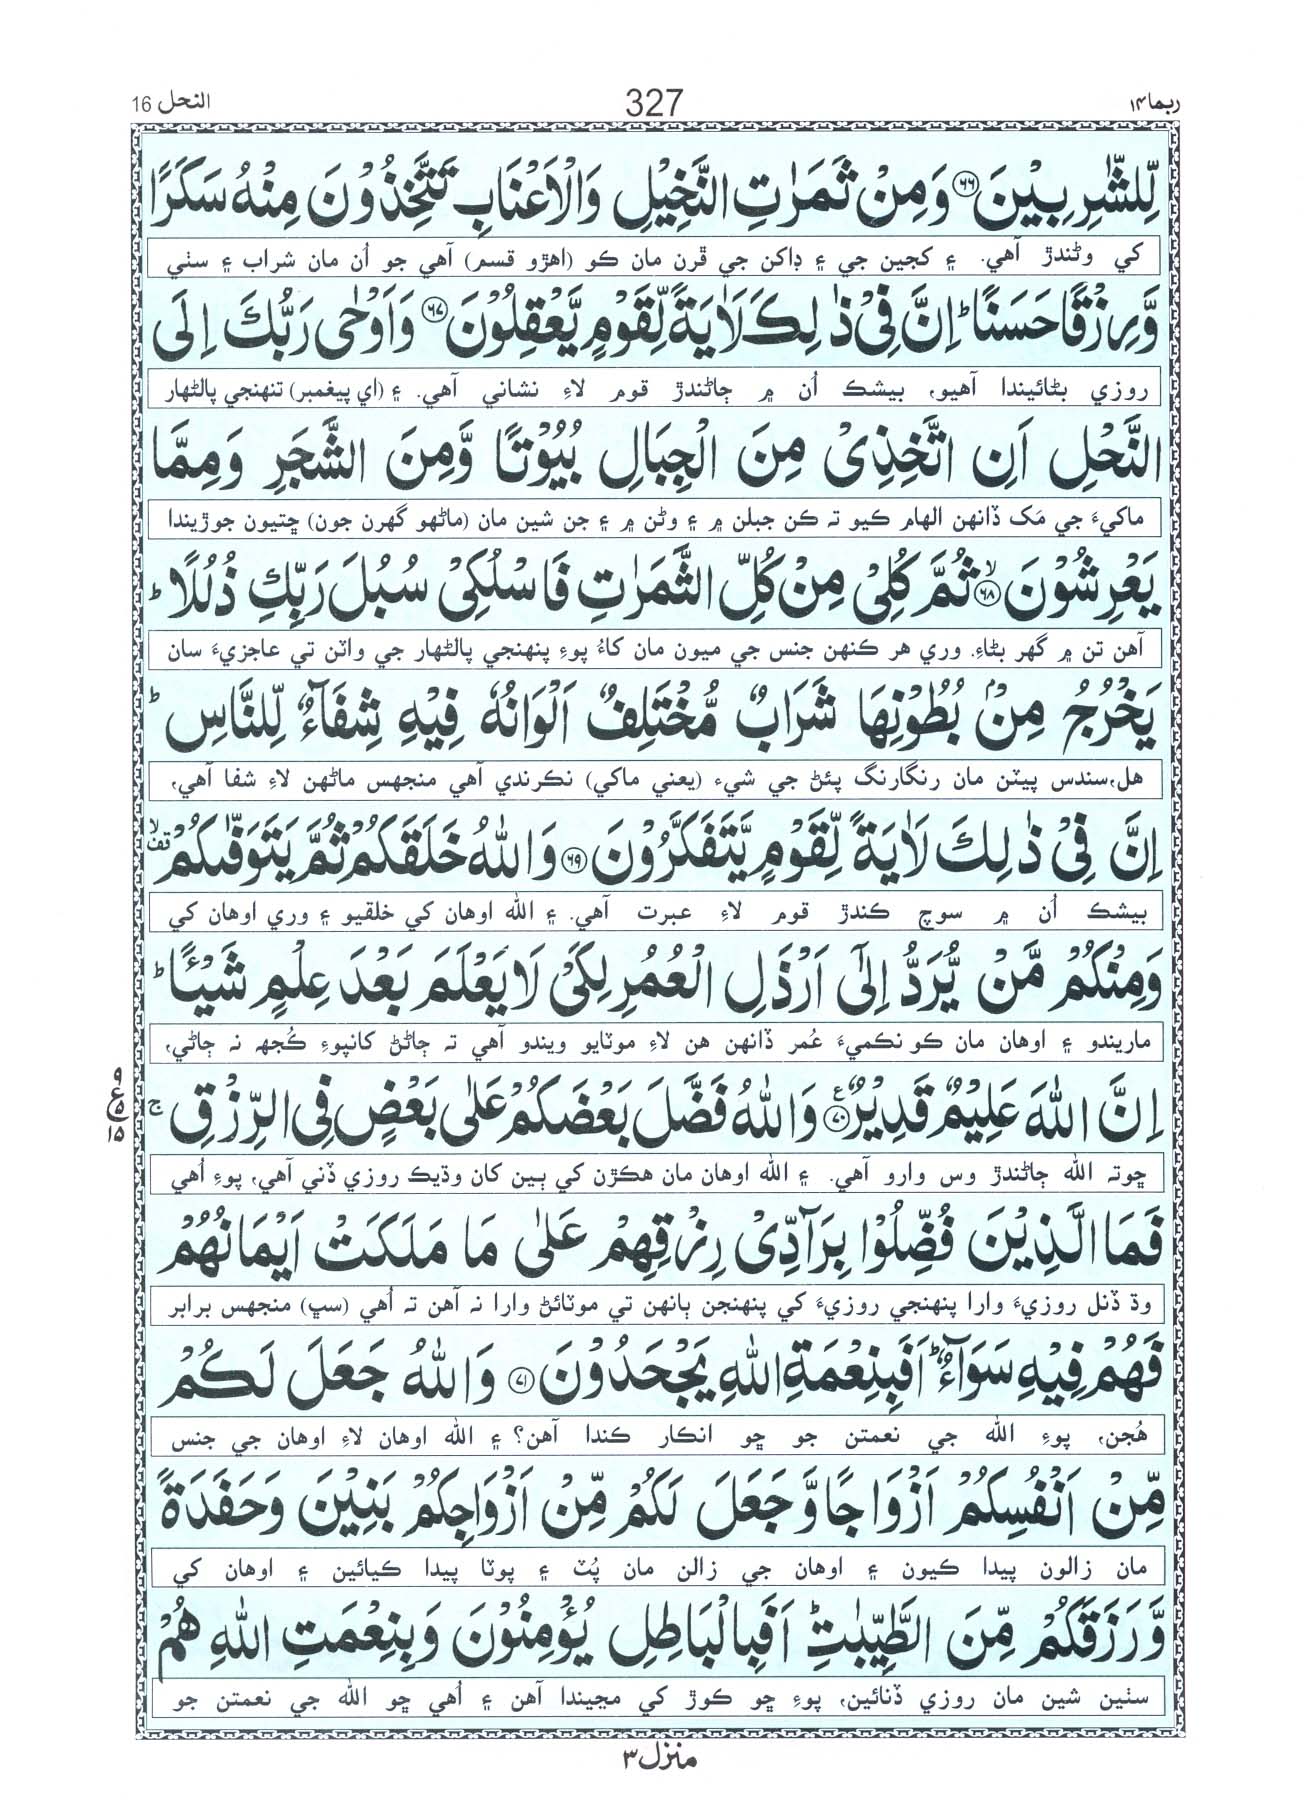 ربما١٤
327
النحل 16
لِّلشّٰرِبِيْنَ ﴿٦٦﴾ وَمِنْ ثَمَرٰتِ النَّخِيْلِ وَالْاَعْنَابِ تَتَّخِذُوْنَ مِنْهُ سَكَرًا
کي وڻندڙ آهي. ۽ کجين جي ۽ ڊاکن جي ڦرن مان ڪو (اهڙو قسم) آهي جو اُن مان شراب ۽ سٺي
وَّرِزْقًا حَسَنًا ؕ اِنَّ فِيْ ذٰلِكَ لَاٰيَةً لِّقَوْمٍ يَّعْقِلُوْنَ ﴿٦٧﴾ وَاَوْحٰى رَبُّكَ اِلَى
روزي بڻائيندا آهيو، بيشڪ اُن ۾ ڄاڻندڙ قوم لاءِ نشاني آهي. ۽ (اي پيغمبر) تنهنجي پالڻهار
النَّحْلِ اَنِ اتَّخِذِيْ مِنَ الْجِبَالِ بُيُوْتًا وَّمِنَ الشَّجَرِ وَمِمَّا
ماکيءَ جي مَک ڏانهن الهام ڪيو تہ ڪن جبلن ۾ ۽ وڻن ۾ ۽ جن شين مان (ماڻهو گهرن جون) ڇتيون جوڙيندا
يَعْرِشُوْنَ ﴿٦٨﴾ۙ ثُمَّ كُلِيْ مِنْ كُلِّ الثَّمَرٰتِ فَاسْلُكِيْ سُبُلَ رَبِّكِ ذُلُلًا ؕ
آهن تن ۾ گهر بڻاءِ. وري هر ڪنهن جنس جي ميون مان کاءُ پوءِ پنهنجي پالڻهار جي واٽن تي عاجزيءَ سان
يَخْرُجُ مِنْۢ بُطُوْنِهَا شَرَابٌ مُّخْتَلِفٌ اَلْوَانُهٗ فِيْهِ شِفَآءٌ لِّلنَّاسِ ؕ
هل، سندس پيٽن مان رنگارنگ پيئڻ جي شيء (يعني ماکي) نڪرندي آهي منجهس ماڻهن لاءِ شفا آهي،
اِنَّ فِيْ ذٰلِكَ لَاٰيَةً لِّقَوْمٍ يَّتَفَكَّرُوْنَ ﴿٦٩﴾ وَاللّٰهُ خَلَقَكُمْ ثُمَّ يَتَوَفّٰىكُمْ ۙ قف
بيشڪ اُن ۾ سوچ ڪندڙ قوم لاءِ عبرت آهي. ۽ الله اوهان کي خلقيو ۽ وري اوهان کي
وَمِنْكُمْ مَّنْ يُّرَدُّ اِلٰٓى اَرْذَلِ الْعُمُرِ لِكَيْ لَا يَعْلَمَ بَعْدَ عِلْمٍ شَيْـًٔا ؕ
ماريندو ۽ اوهان مان ڪو نڪميءَ عُمر ڏانهن هن لاءِ موٽايو ويندو آهي تہ ڄاڻڻ کانپوءِ ڪُجهہ نہ ڄاڻي،
اِنَّ اللّٰهَ عَلِيْمٌ قَدِيْرٌ ﴿٧٠﴾ۧ وَاللّٰهُ فَضَّلَ بَعْضَكُمْ عَلٰى بَعْضٍ فِي الرِّزْقِ ۚ
٩
ع ٥
١٥
ڇوتہ الله ڄاڻندڙ وس وارو آهي. ۽ الله اوهان مان هڪڙن کي ٻين کان وڌيڪ روزي ڏني آهي، پوءِ اُهي
فَمَا الَّذِيْنَ فُضِّلُوْا بِرَآدِّيْ رِزْقِهِمْ عَلٰى مَا مَلَكَتْ اَيْمَانُهُمْ
وڌ ڏنل روزيءَ وارا پنهنجي روزيءَ کي پنهنجن ٻانهن تي موٽائڻ وارا نہ آهن تہ اُهي (سڀ) منجهس برابر
فَهُمْ فِيْهِ سَوَآءٌ ؕ اَفَبِنِعْمَةِ اللّٰهِ يَجْحَدُوْنَ ﴿٧١﴾ وَاللّٰهُ جَعَلَ لَكُمْ
هُجن، پوءِ الله جي نعمتن جو ڇو انڪار ڪندا آهن؟ ۽ الله اوهان لاءِ اوهان جي جنس
مِّنْ اَنْفُسِكُمْ اَزْوَاجًا وَّجَعَلَ لَكُمْ مِّنْ اَزْوَاجِكُمْ بَنِيْنَ وَحَفَدَةً
مان زالون پيدا ڪيون ۽ اوهان جي زالن مان پُٽ ۽ پوٽا پيدا ڪيائين ۽ اوهان کي
وَّرَزَقَكُمْ مِّنَ الطَّيِّبٰتِ ؕ اَفَبِالْبَاطِلِ يُؤْمِنُوْنَ وَبِنِعْمَتِ اللّٰهِ هُمْ
سٺين شين مان روزي ڏنائين، پوءِ ڇو ڪوڙ کي مڃيندا آهن ۽ اُهي ڇو الله جي نعمتن جو
منزل ٣